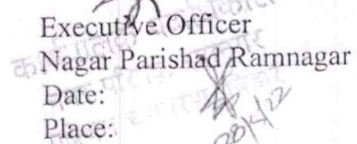 Executive Officer
Nagar Parishad Ramnagar
Date:
Place: